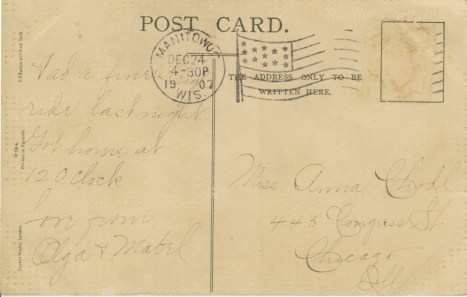 POST CARD.
MANITOWOC
DEC 24
4-30P
1907
WIS.
THE ADDRESS ONLY TO BE
WRITTEN HERE.
Had a fine
ride last night
Got home at
12 O clock
Love from
Olga & Mabel
Miss Anna
445 Congress St
Chicago
Ill